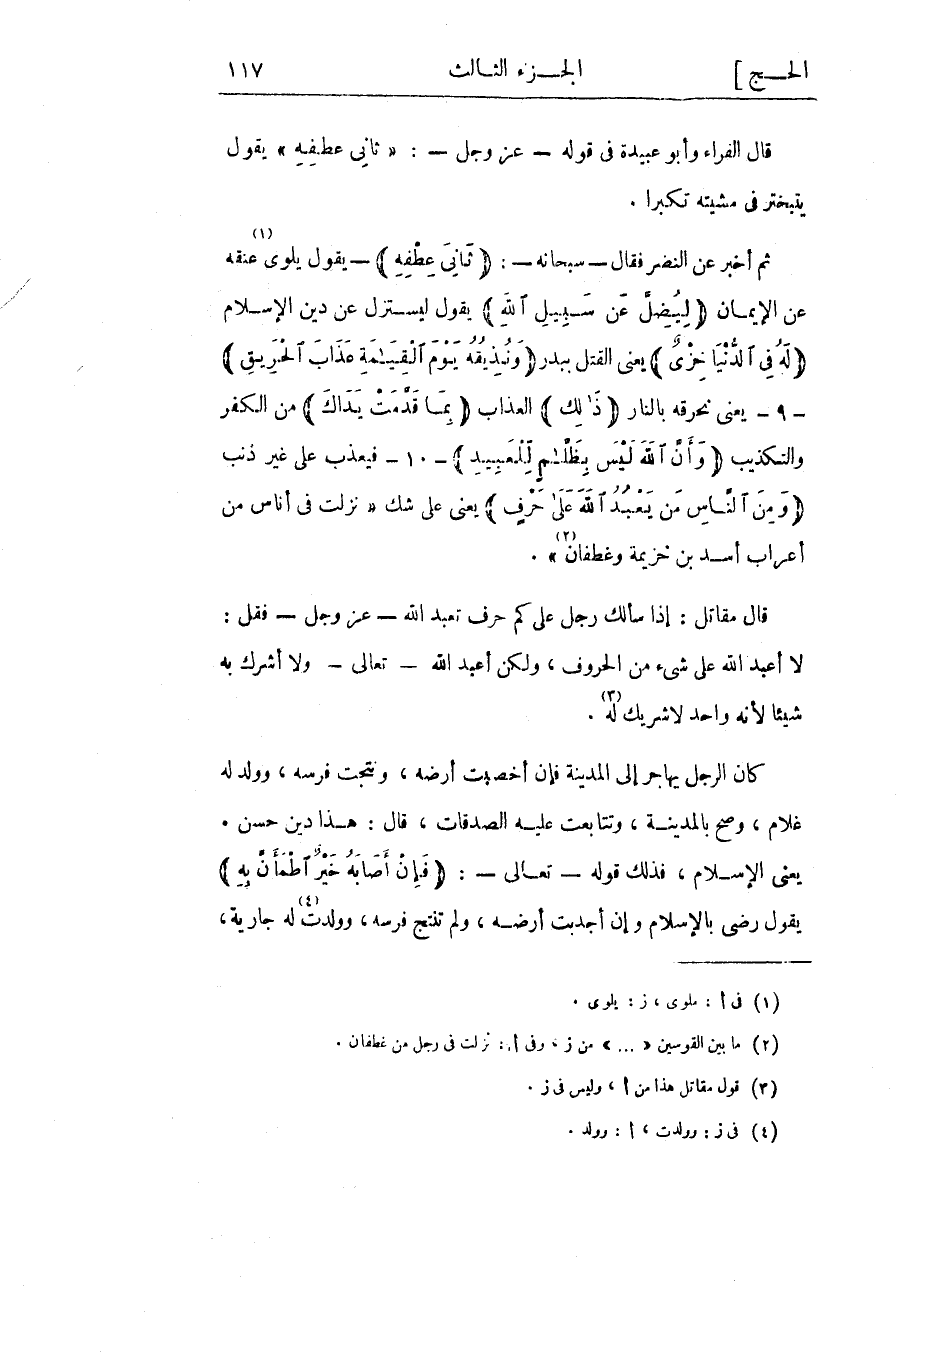 الحـــج ] الجـــزء الثـالث ١١٧
قال الفراء وأبو عبيدة فى قوله – عز وجل – : « ثانِى عطفِهِ » يقول
يتبختر فى مشيته تكبرا .
ثم أخبر عن النضر فقال – سبحانه – : ﴿ ثَانِىَ عِطْفِهِ ﴾ – يقول يلوى (١) عنقه
عن الإيمـان ﴿ لِيُضِلَّ عَن سَــبِيـلِ ٱللَّهِ ﴾ يقول ليســتزل عن دين الإســلام
﴿ لَهُ فِى ٱلدُّنْيَا خِزْىٌ ﴾ يعنى القتل ببدر ﴿ وَنُذِيقُهُ يَوْمَ ٱلْقِيَـٰمَةِ عَذَابَ ٱلْحَرِيقِ ﴾
– ٩ – يعنى نحرقه بالنار ﴿ ذَٰلِكَ ﴾ العذاب ﴿ بِمَـا قَدَّمَتْ يَدَاكَ ﴾ من الكفر
والتكذيب ﴿ وَأَنَّ ٱللَّهَ لَيْسَ بِظَلَّـٰمٍ لِّلْعَبِيـدِ ﴾ – ١٠ – فيعذب على غير ذنب
﴿ وَمِنَ ٱلنَّـاسِ مَن يَعْبُدُ ٱللَّهَ عَلَىٰ حَرْفٍ ﴾ يعنى على شك « نزلت فى أناس من
أعراب أســد بن خزيمة وغطفان (٢) » .
قال مقاتل : إذا سألك رجل على كم حرف تعبد الله – عز وجل – فقل :
لا أعبد الله على شىء من الحروف ، ولكن أعبد الله – تعالى – ولا أشرك به
شيئا لأنه واحد لاشريك له (٣) .
كان الرجل يهاجر إلى المدينة فإن أخصبت أرضه ، ونتجت فرسه ، وولد له
غلام ، وصح بالمدينــة ، وتتابعت عليــه الصدقات ، قال : هــذا دين حسن .
يعنى الإســلام ، فذلك قوله – تعـالى – : ﴿ فَإِنْ أَصَابَهُ خَيْرٌ ٱطْمَأَنَّ بِهِ ﴾
يقول رضى بالإسلام وإن أجدبت أرضــه ، ولم تنتج فرسه ، وولدت (٤) له جارية ،
(١) فى أ : ملوى ، ز : يلوى .
(٢) ما بين القوسين « ... » من ز ، وفى أ : نزلت فى رجل من غطفان .
(٣) قول مقاتل هذا من أ ، وليس فى ز .
(٤) فى ز : وولدت ، أ : وولد .